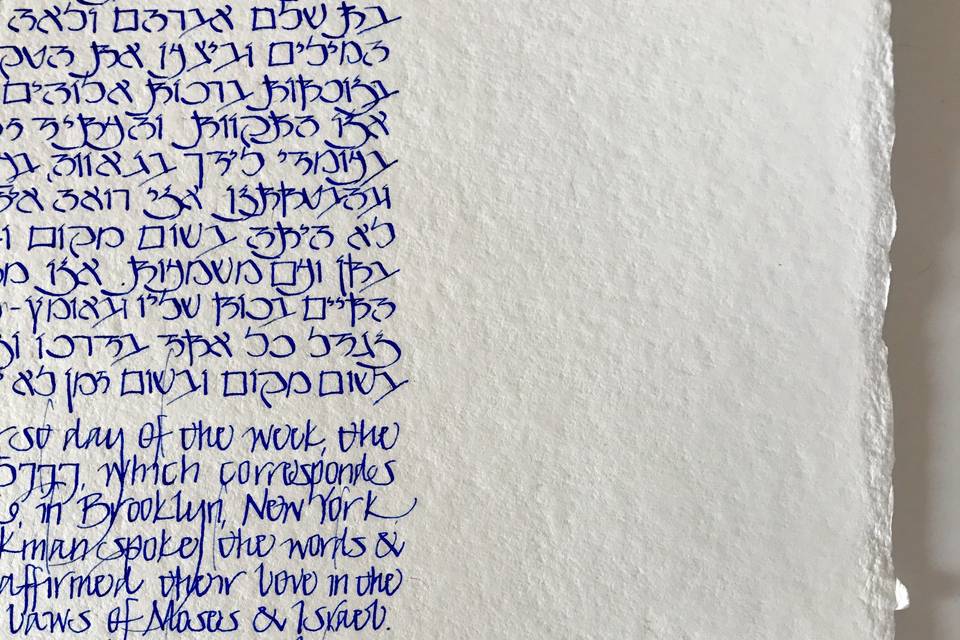 בת שלם אברהם ולאה
המילים וביצעו את
בנוכחות ברכות אלוהים
אנו התקוות והעתיד
בעומדי לידך בגאווה
ובהבטחתנו אני רואה
לא היתה בשום מקום
בחן ועם משמעות. אנו
החיים בכוח שליו ובאומץ-
נגדל כל אחד בדרכו
בשום מקום ובשום זמן לא
rst day of the week, the
5777, which correspondes
in Brooklyn, New York.
kman spoke the words &
affirmed their love in the
Laws of Moses & Israel.